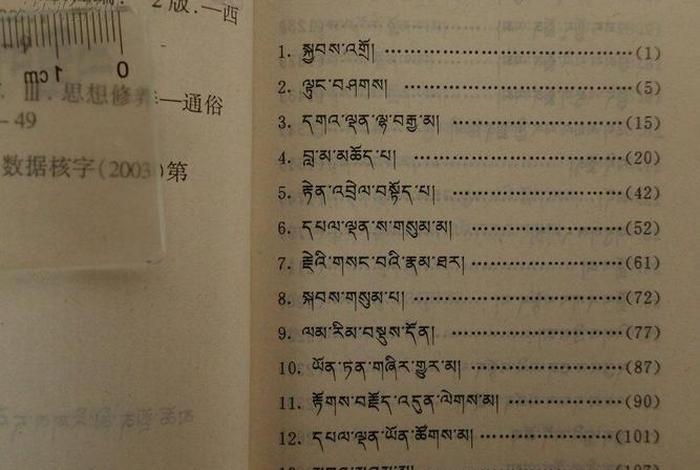 2版.—西
1cm 0
Ⅲ.思想修养—通俗
-49
数据核字(2003)第
1. སྐྱབས་འགྲོ། ……………………………(1)
2. ལྟུང་བཤགས། ……………………………(5)
3. དགའ་ལྡན་ལྷ་བརྒྱ་མ། ……………………………(15)
4. བླ་མ་མཆོད་པ། ……………………………(20)
5. རྟེན་འབྲེལ་བསྟོད་པ། ……………………………(42)
6. དཔལ་ལྡན་ས་གསུམ་མ། ……………………………(52)
7. རྗེའི་གསང་བའི་རྣམ་ཐར། ……………………………(61)
8. སྐབས་གསུམ་པ། ……………………………(72)
9. ལམ་རིམ་བསྡུས་དོན། ……………………………(77)
10. ཡོན་ཏན་གཞིར་གྱུར་མ། ……………………………(87)
11. རྟོགས་བརྗོད་འདུན་ལེགས་མ། ……………………………(90)
12. དཔལ་ལྡན་ཡོན་ཚོགས་མ། ……………………………(101)